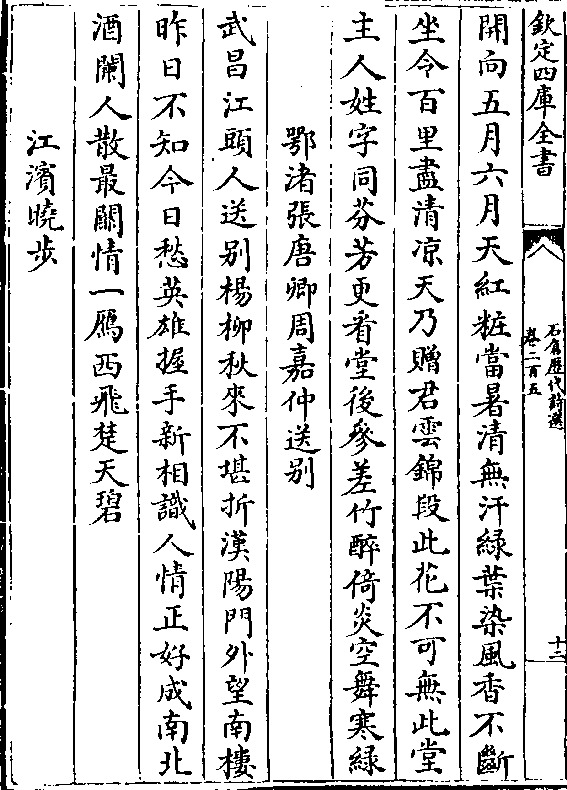 欽定四庫全書
石倉歷代詩選
卷二百五
十二
開向五月六月天紅粧當暑清無汗綠葉染風香不斷
坐令百里盡清凉天乃贈君雲錦段此花不可無此堂
主人姓字同芬芳更看堂後參差竹醉倚炎空舞寒綠
鄂渚張唐卿周嘉仲送别
武昌江頭人送别楊柳秋來不堪折漢陽門外望南樓
昨日不知今日愁英雄握手新相識人情正好成南北
酒闌人散最關情一鴈西飛楚天碧
江濱曉步